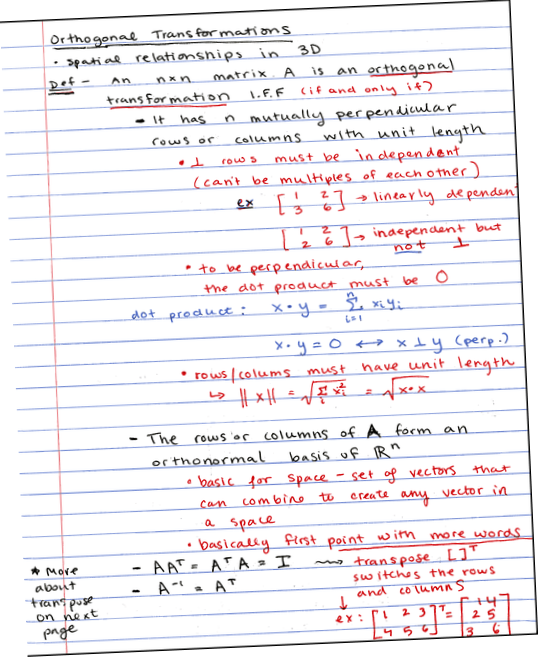 Orthogonal Transformations
• spatial relationships in 3D
Def - An n×n matrix A is an orthogonal
transformation I.F.F (if and only if)
- It has n mutually perpendicular
rows or columns with unit length
• ⊥ rows must be independent
(can't be multiples of each other)
ex [1 2
3 6] → linearly dependen
[1 2
2 6] → independent but
not ⊥
• to be perpendicular,
the dot product must be 0
dot product: x • y = Σ_{i=1}^{n} x_i y_i
x • y = 0 ↔ x ⊥ y (perp.)
• rows/colums must have unit length
↳ ||x|| = √(Σ_i x_i^2) = √(x•x)
- The rows or columns of A form an
orthonormal basis of ℝ^n
• basic for space - set of vectors that
can combine to create any vector in
a space
• basically first point with more words
- AA^T = A^T A = I ⇝ transpose [ ]^T
switches the rows
and columns
- A^-1 = A^T
↓
ex: [1 2 3
4 5 6]^T = [1 4
2 5
3 6]
* More
about
transpose
on next
page